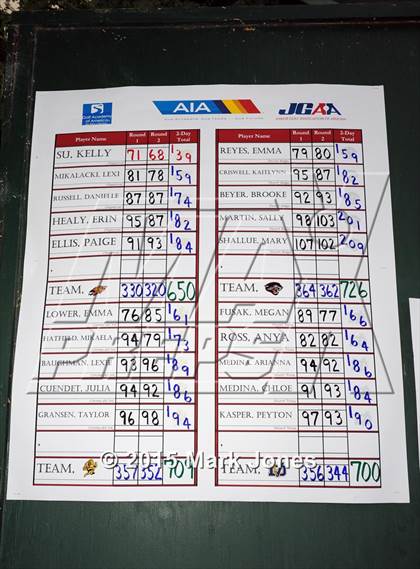 Golf Academy of America
AIA
JGAA
Player Name Round 1 Round 2 2-Day Total
SU, KELLY 71 68 139
MIKALACKI, LEXI 81 78 159
RUSSELL, DANIELLE 87 87 174
HEALY, ERIN 95 87 182
ELLIS, PAIGE 91 93 184
TEAM, 330 320 650
LOWER, EMMA 76 85 161
HATFIELD, MIKAELA 94 79 173
BAUGHMAN, LEXIE 93 96 189
CUENDET, JULIA 94 92 186
GRANSEN, TAYLOR 96 98 194
TEAM, 357 352 709
Player Name Round 1 Round 2 2-Day Total
REYES, EMMA 79 80 159
CRISWELL, KAITLYNN 95 87 182
BEYER, BROOKE 92 93 185
MARTIN, SALLY 98 103 201
SHALLUE, MARY 107 102 209
TEAM, 364 362 726
FUSAK, MEGAN 89 77 166
ROSS, ANYA 82 82 164
MEDINA, ARIANNA 94 92 186
MEDINA, CHLOE 91 93 184
KASPER, PEYTON 97 93 190
TEAM, 356 344 700
© 2015 Mark Jones